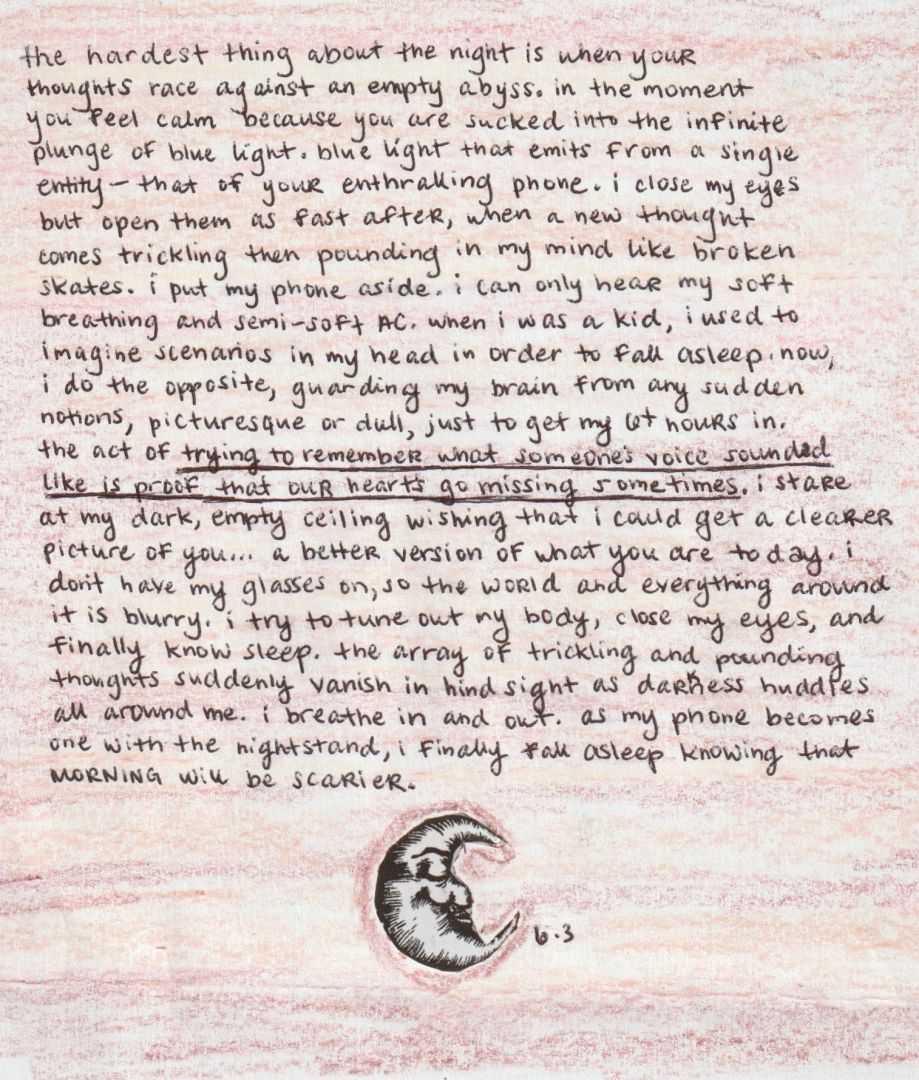 the hardest thing about the night is when your
thoughts race against an empty abyss. in the moment
you feel calm because you are sucked into the infinite
plunge of blue light. blue light that emits from a single
entity - that of your enthralling phone. i close my eyes
but open them as fast after, when a new thought
comes trickling then pounding in my mind like broken
skates. i put my phone aside. i can only hear my soft
breathing and semi-soft AC. when i was a kid, i used to
imagine scenarios in my head in order to fall asleep. now,
i do the opposite, guarding my brain from any sudden
notions, picturesque or dull, just to get my 6+ hours in.
the act of trying to remember what someone's voice sounded
like is proof that our hearts go missing sometimes. i stare
at my dark, empty ceiling wishing that i could get a clearer
picture of you... a better version of what you are today. i
don't have my glasses on, so the world and everything around
it is blurry. i try to tune out my body, close my eyes, and
finally know sleep. the array of trickling and pounding
thoughts suddenly vanish in hind sight as darkness huddles
all around me. i breathe in and out. as my phone becomes
one with the nightstand, i finally fall asleep knowing that
MORNING will be scarier.
6.3